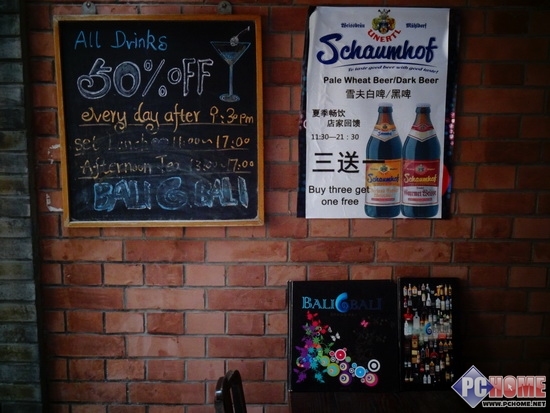 All Drinks
50% OFF
every day after 9:30pm
Set Lunch 11:00~17:00
Afternoon Tea 13:00~17:00
BALI BALI
Weissbräu Mühldorf
UNERTL
Schaumhof
To savor good beer with good taste!
Pale Wheat Beer/Dark Beer
雪夫白啤/黑啤
夏季畅饮
店家回馈
11:30—21:30
三送一
Buy three get
one free
Schaumhof
Schaumhof
BALI BALI
PCHOME
WWW.PCHOME.NET